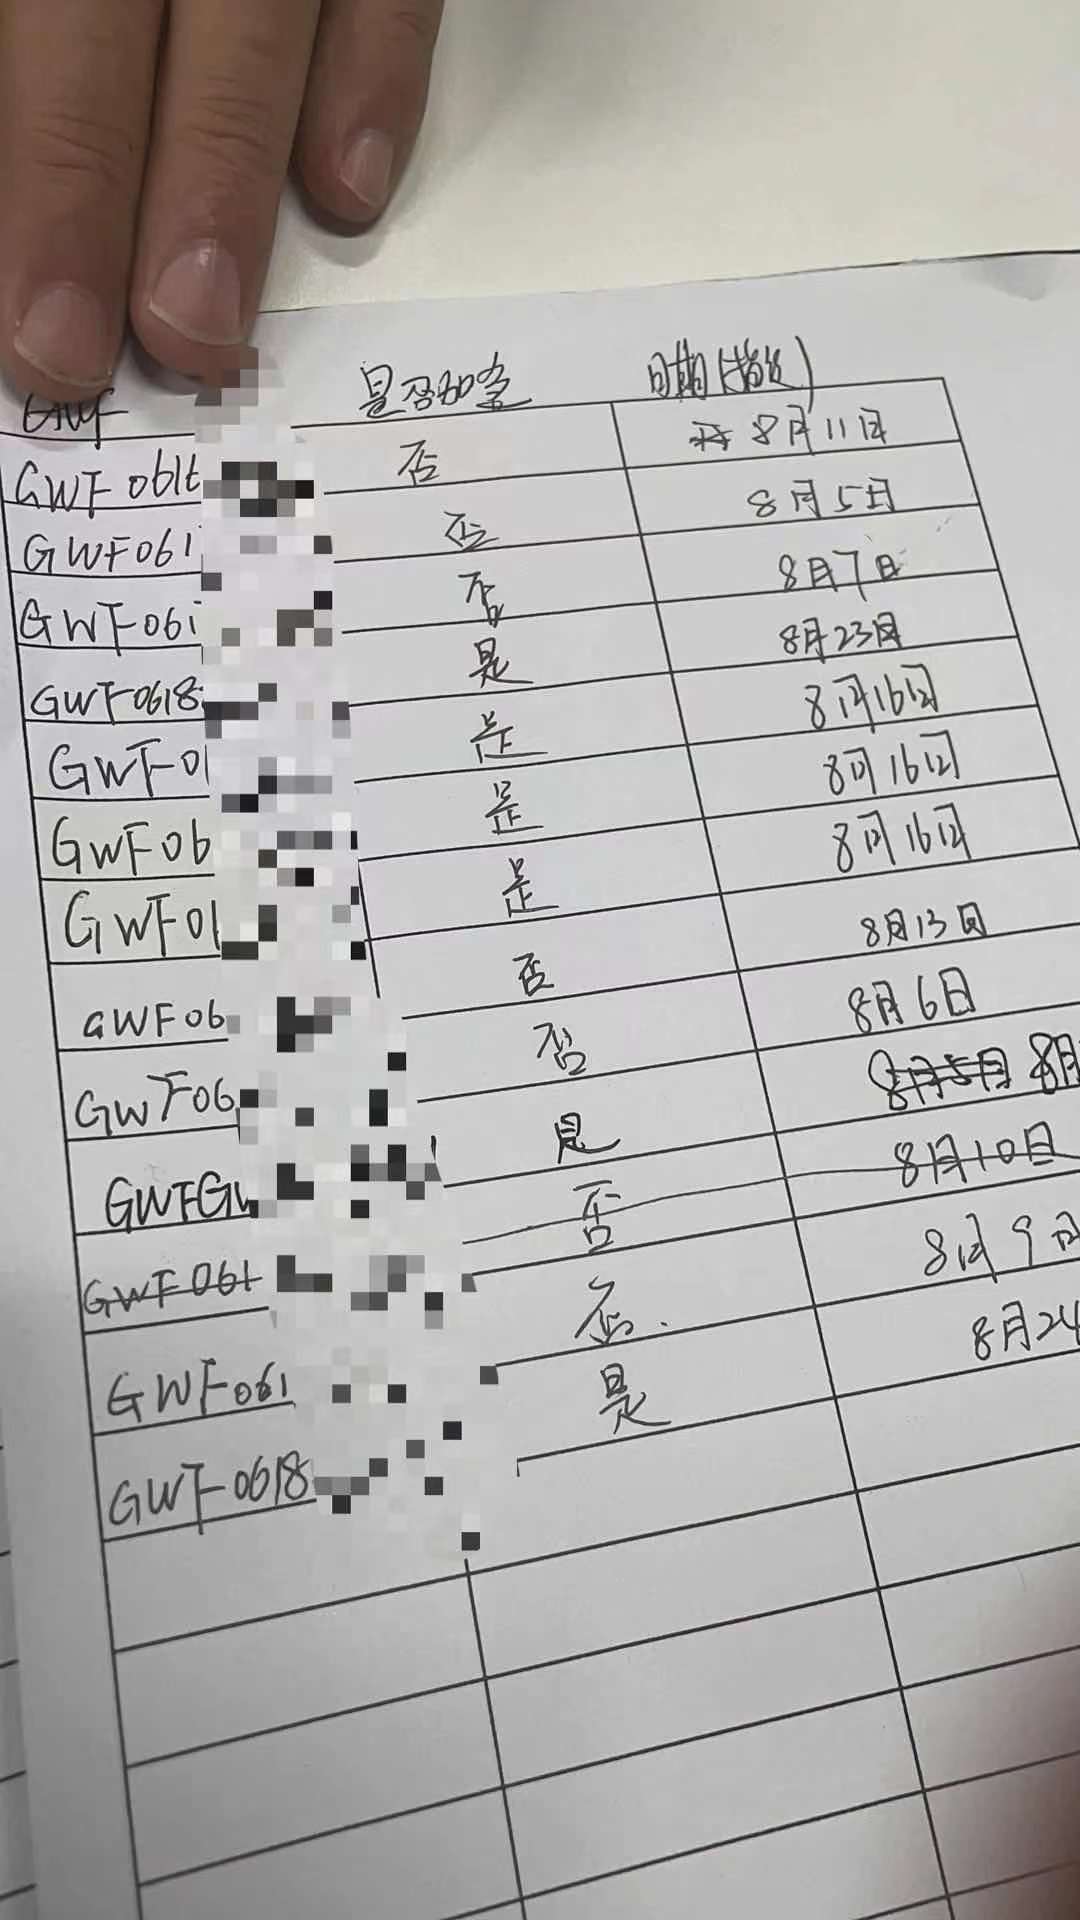 GWF 是否加拿 日期(指纹)
GWF061 否 8月11日
GWF061 否 8月5日
GWF061 否 8月7日
GWF0618 是 8月23日
GWF0 是 8月16日
GWF06 是 8月16日
GWF0 是 8月16日
GWF06 否 8月13日
GWF06 否 8月6日
GWFGW 是 8月5日 8月
GWF061 否 8月10日
GWF061 否 8月9日
GWF0618 是 8月24